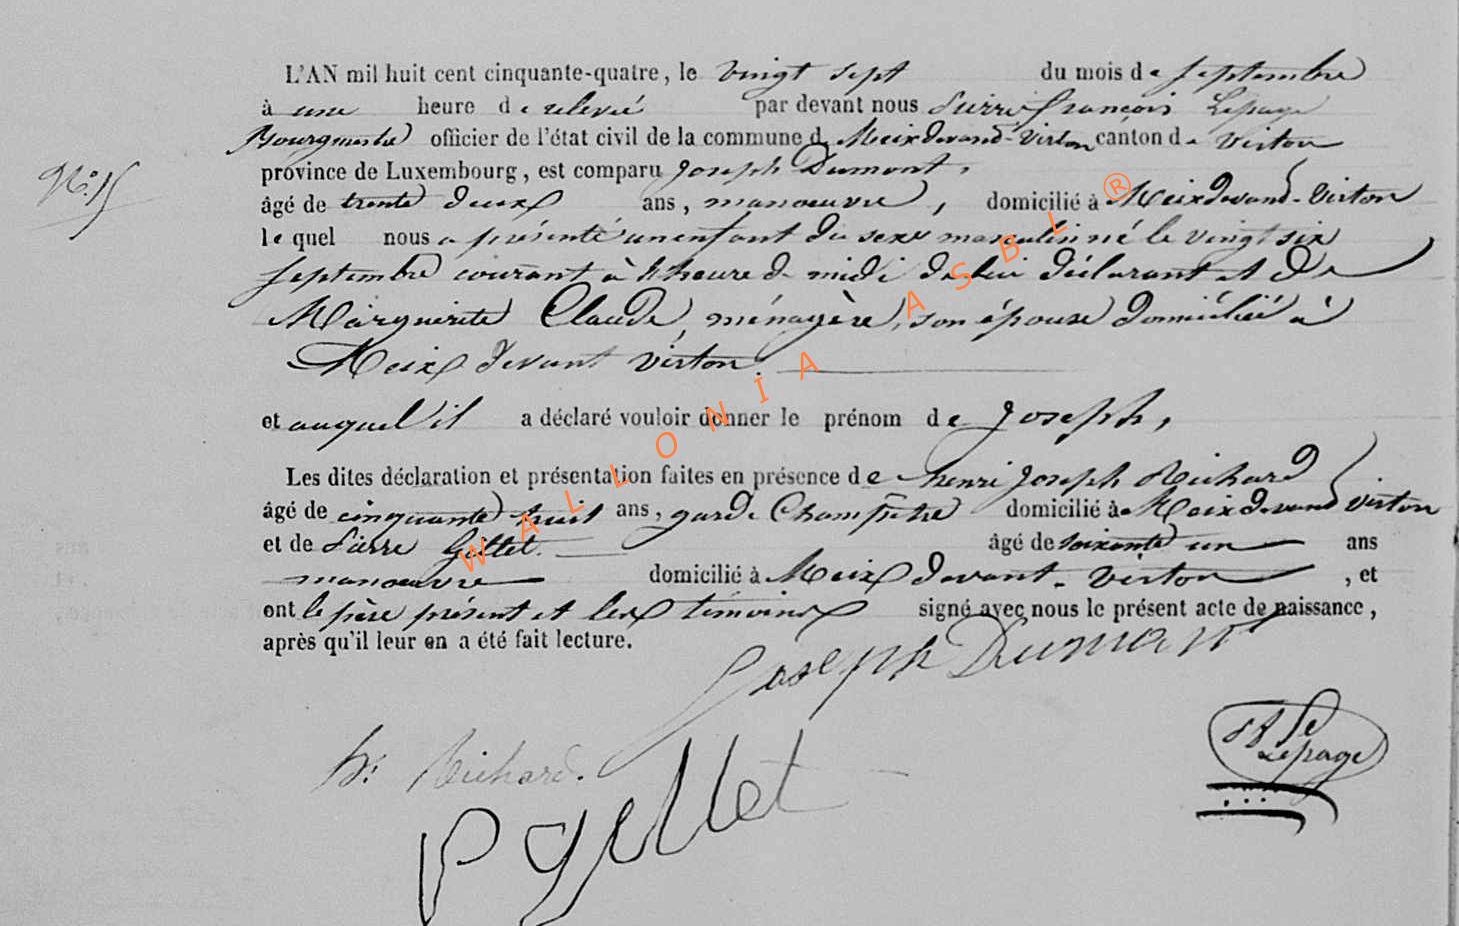 L'AN mil huit cent cinquante-quatre, le vingt sept du mois de septembre
à une heure de relevé par devant nous Pierre françois Lepage
Bourgmestre officier de l'état civil de la commune d Meix devand-Virton canton de Virton
province de Luxembourg, est comparu Joseph Dumont,
N° 15
âgé de trente deux ans, manoeuvre, domicilié à Meix devand-Virton
lequel nous a présenté un enfant du sexe masculin né le vingt six
septembre courant à heure de midi de lui déclarant et de
Marguerite Claude, ménagère, son épouse domiciliée à
Meix devant Virton.
et auquel il a déclaré vouloir donner le prénom de Joseph,
Les dites déclaration et présentation faites en présence de henri Joseph Richard
âgé de cinquante huit ans, garde Champêtre domicilié à Meix devand Virton
et de Pierre âgé de soixante un ans
manoeuvre domicilié à Meix devant-Virton, et
ont le père présent et les témoins signé avec nous le présent acte de naissance,
après qu'il leur en a été fait lecture.
Joseph Dumont
h. Richard.
Lepage
WALLONIA ASBL ®